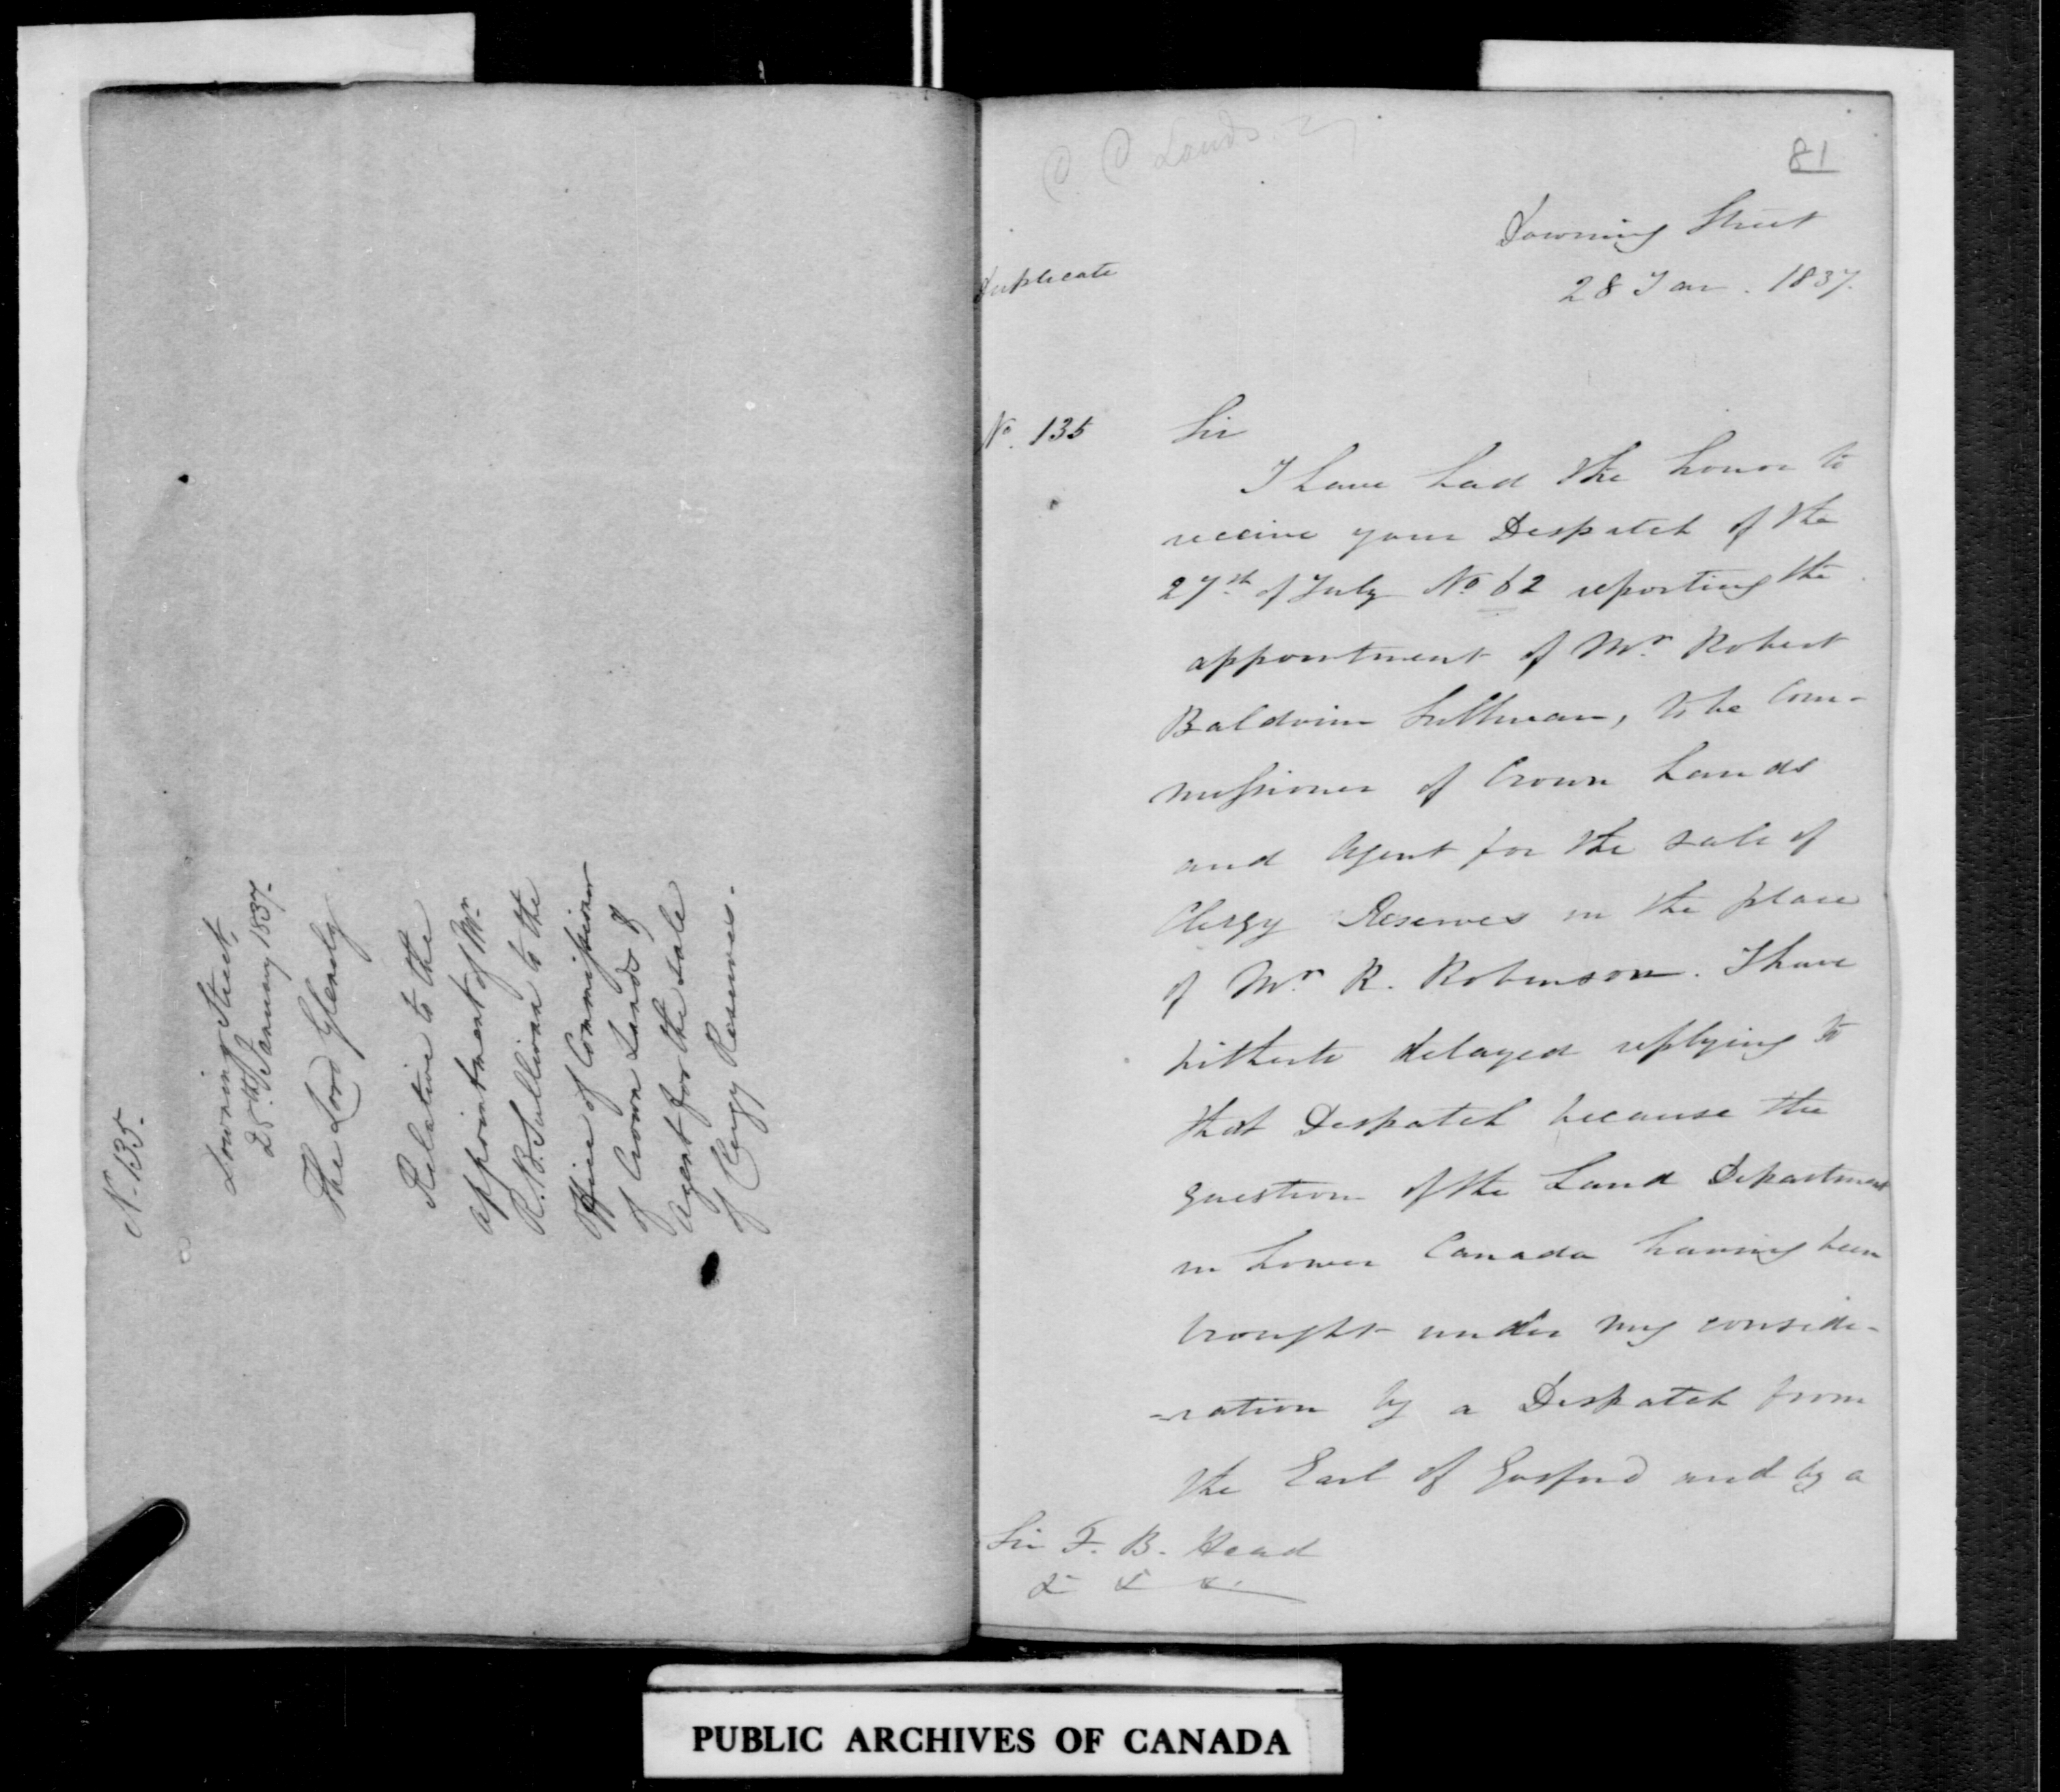 N. 135.
Downing Street,
28th. January 1837.
The Lord Glenelg
Relative to the
appointment of Mr.
R. B. Sullivan to the
Office of Commissioner
of Crown Lands &
Agent for the sale
of Clergy Reserves.
C. C Lands
81
Downing Street
28 Jan. 1837.
Duplicate
No. 135
Sir
I have had the honor to
receive your Despatch of the
27th of July No. 62 reporting the
appointment of Mr. Robert
Baldwin Sullivan, to be Com-
missioner of Crown Lands
and Agent for the sale of
Clergy Reserves in the place
of Mr. R. Robinson. I have
hitherto delayed replying to
that Despatch because the
question of the Land Department
in Lower Canada having been
brought under my conside-
-ration by a Despatch from
the Earl of Gosford and by a
Sir F. B. Head
& & &.
PUBLIC ARCHIVES OF CANADA